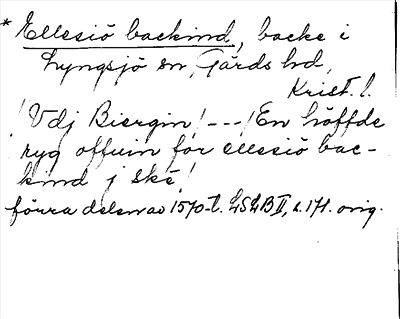 * Ellesiö backind, backe i
Lyngsjö sn, Gärds hd,
Krist. l.
! Vdj Biergin! ---! En höffde
ryg offuin for ellesiö bac-
kind j Ske!
förra delen av 1570-t. LSLB II, s. 171. orig.